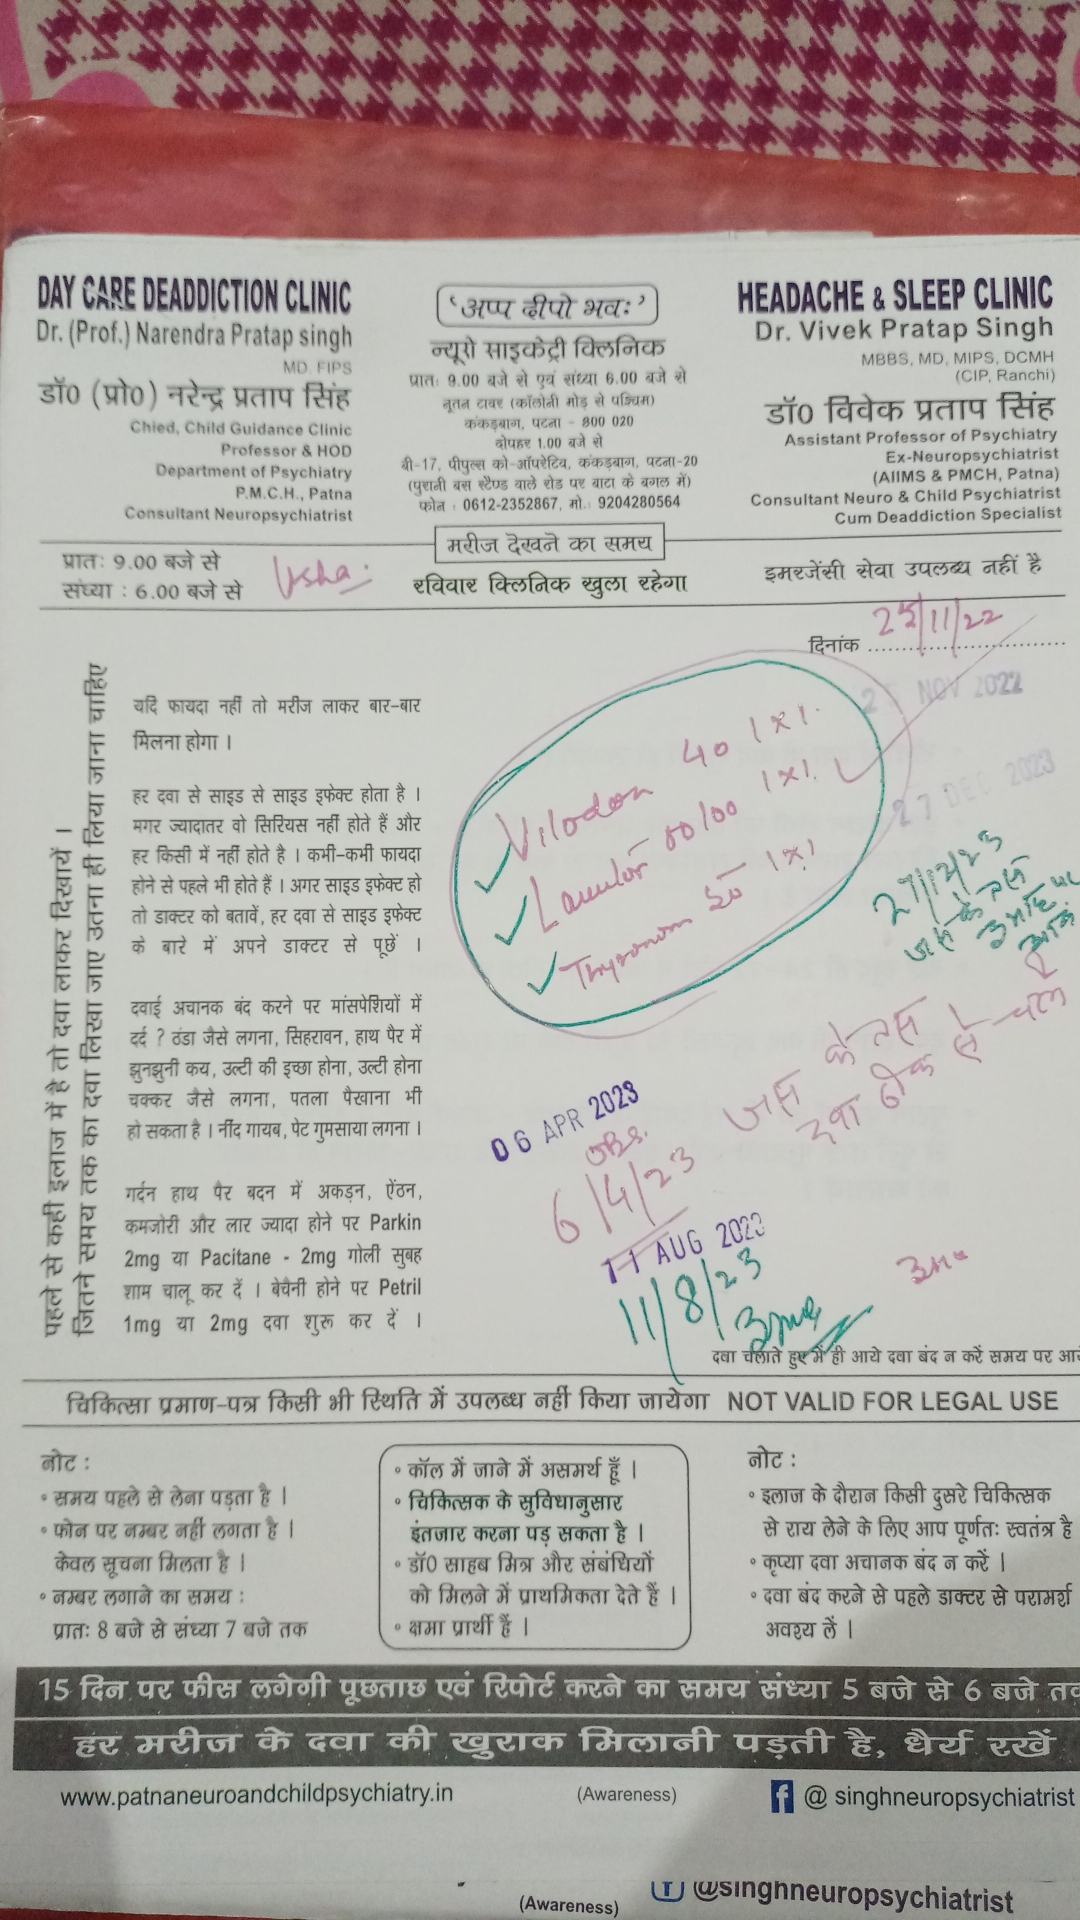 DAY CARE DEADDICTION CLINIC
Dr. (Prof.) Narendra Pratap singh
MD. FIPS
डॉ0 (प्रो0) नरेन्द्र प्रताप सिंह
Chied, Child Guidance Clinic
Professor & HOD
Department of Psychiatry
P.M.C.H., Patna
Consultant Neuropsychiatrist
‘अप्प दीपो भवः’
न्यूरो साइकेट्री क्लिनिक
प्रातः 9.00 बजे से एवं संध्या 6.00 बजे से
नूतन टावर (कॉलोनी मोड़ से पश्चिम)
कंकड़बाग, पटना - 800 020
दोपहर 1.00 बजे से
बी-17, पीपुल्स को-ऑपरेटिव, कंकड़बाग, पटना-20
(पुरानी बस स्टैण्ड वाले रोड पर बाटा के बगल में)
फोन : 0612-2352867, मो.: 9204280564
HEADACHE & SLEEP CLINIC
Dr. Vivek Pratap Singh
MBBS, MD, MIPS, DCMH
(CIP, Ranchi)
डॉ0 विवेक प्रताप सिंह
Assistant Professor of Psychiatry
Ex-Neuropsychiatrist
(AIIMS & PMCH, Patna)
Consultant Neuro & Child Psychiatrist
Cum Deaddiction Specialist
प्रातः 9.00 बजे से
संध्या : 6.00 बजे से
Usha
मरीज देखने का समय
रविवार क्लिनिक खुला रहेगा
इमरजेंसी सेवा उपलब्ध नहीं है
दिनांक 25/11/22
25 NOV 2022
27 DEC 2023
पहले से कहीं इलाज में है तो दवा लाकर दिखायें ।
जितने समय तक का दवा लिखा जाए उतना ही लिया जाना चाहिए
यदि फायदा नहीं तो मरीज लाकर बार-बार
मिलना होगा ।
हर दवा से साइड से साइड इफेक्ट होता है ।
मगर ज्यादातर वो सिरियस नहीं होते हैं और
हर किसी में नहीं होते है । कभी-कभी फायदा
होने से पहले भी होते हैं । अगर साइड इफेक्ट हो
तो डाक्टर को बतावें, हर दवा से साइड इफेक्ट
के बारे में अपने डाक्टर से पूछें ।
दवाई अचानक बंद करने पर मांसपेशियों में
दर्द ? ठंडा जैसे लगना, सिहरावन, हाथ पैर में
झुनझुनी कय, उल्टी की इच्छा होना, उल्टी होना
चक्कर जैसे लगना, पतला पैखाना भी
हो सकता है । नींद गायब, पेट गुमसाया लगना ।
गर्दन हाथ पैर बदन में अकड़न, ऐंठन,
कमजोरी और लार ज्यादा होने पर Parkin
2mg या Pacitane - 2mg गोली सुबह
शाम चालू कर दें । बेचैनी होने पर Petril
1mg या 2mg दवा शुरू कर दें ।
Vilodon 40 1x1
1x1
1x1
27/12/23
जस के तस
जस के तस
दवा ठीक से
06 APR 2023
6/4/23
11 AUG 2023
11/8/23
दवा चलाते हुए में ही आये दवा बंद न करें समय पर
चिकित्सा प्रमाण-पत्र किसी भी स्थिति में उपलब्ध नहीं किया जायेगा NOT VALID FOR LEGAL USE
नोट :
• समय पहले से लेना पड़ता है ।
• फोन पर नम्बर नहीं लगता है ।
केवल सूचना मिलता है ।
• नम्बर लगाने का समय :
प्रातः 8 बजे से संध्या 7 बजे तक
• कॉल में जाने में असमर्थ हूँ ।
• चिकित्सक के सुविधानुसार
इंतजार करना पड़ सकता है ।
• डॉ0 साहब मित्र और संबंधियों
को मिलने में प्राथमिकता देते हैं ।
• क्षमा प्रार्थी हैं ।
नोट :
• इलाज के दौरान किसी दुसरे चिकित्सक
से राय लेने के लिए आप पूर्णतः स्वतंत्र है
• कृप्या दवा अचानक बंद न करें ।
• दवा बंद करने से पहले डाक्टर से परामर्श
अवश्य लें ।
15 दिन पर फीस लगेगी पूछताछ एवं रिपोर्ट करने का समय संध्या 5 बजे से 6 बजे तक
हर मरीज के दवा की खुराक मिलानी पड़ती है, धैर्य रखें
www.patnaneuroandchildpsychiatry.in
(Awareness)
f @ singhneuropsychiatrist
(Awareness)
@singhneuropsychiatrist